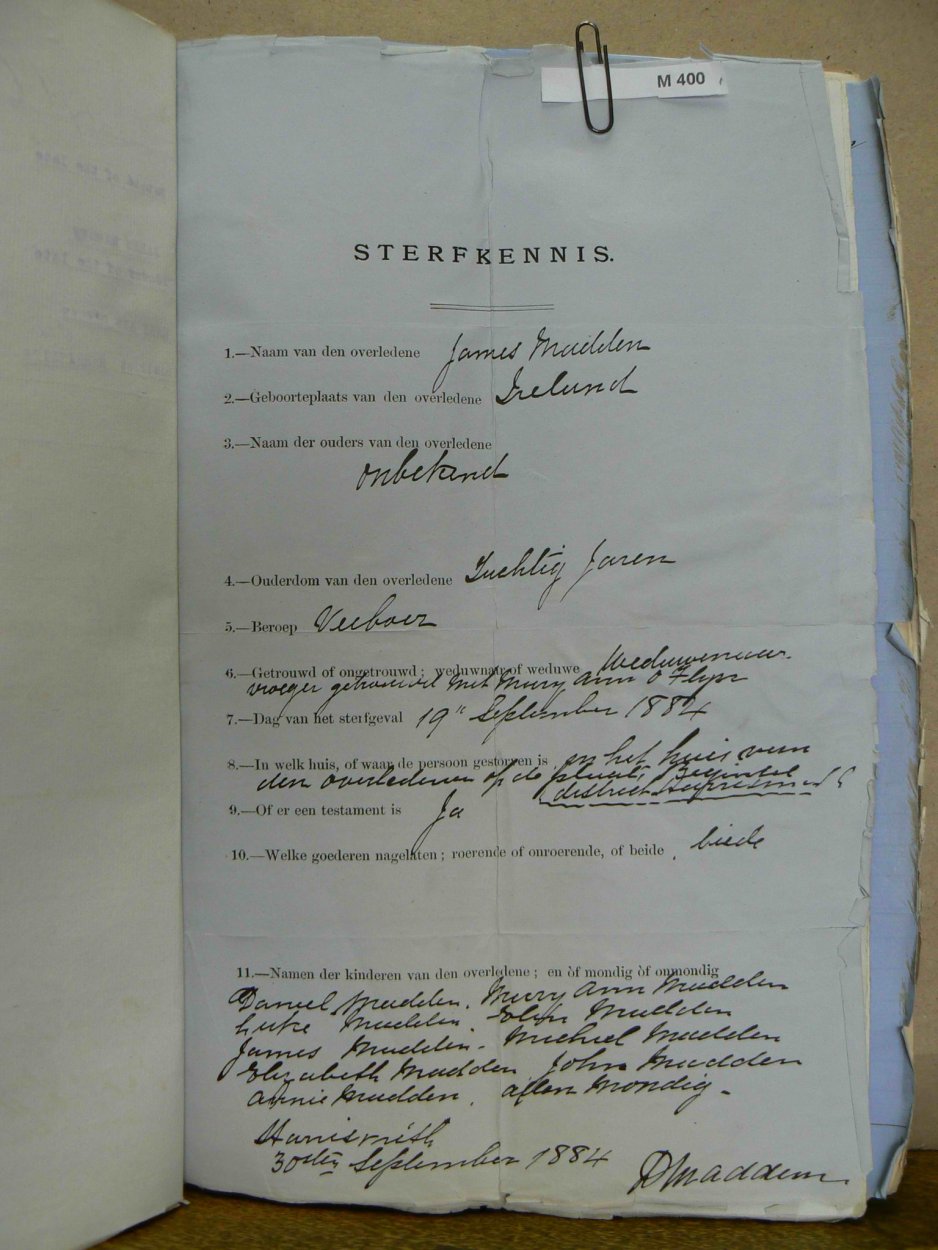 M 400
STERFKENNIS.
1.—Naam van den overledene James Madden
2.—Geboorteplaats van den overledene Ireland
3.—Naam der ouders van den overledene
onbekend
4.—Ouderdom van den overledene Tachtig Jaren
5.—Beroep Veeboer
6.—Getrouwd of ongetrouwd; weduwnaar of weduwe Weduwenaar
vroeger getrouwd met Mary Ann O Flyn
7.—Dag van het sterfgeval 19e September 1884
8.—In welk huis, of waar de persoon gestorven is in het huis van
den overledenen op de plaats
district
9.—Of er een testament is Ja
10.—Welke goederen nagelaten; roerende of onroerende, of beide, biede
11.—Namen der kinderen van den overledene; en òf mondig òf onmondig
Daniel Madden. Mary Ann Madden
Luke Madden. Ellen Madden
James Madden. Michiel Madden
Elizabeth Madden, John Madden
Annie Madden, allen Mondig.
Harrismith
30sten September 1884
D Madden